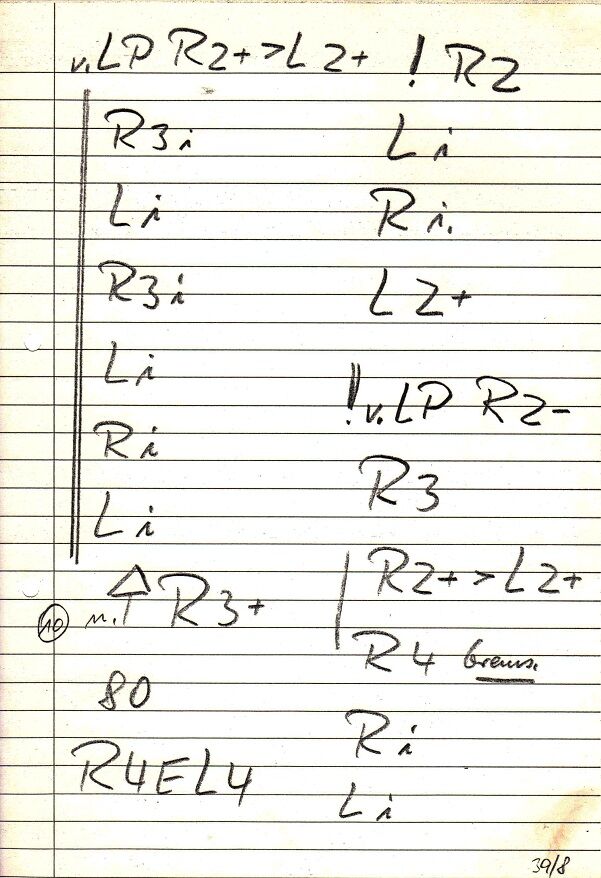 v. LP R2+ > L2+
R3i
Li
R3i
Li
Ri
Li
10 n. R3+
80
R4EL4
! R2
Li
Ri.
L2+
!! v. LP R2-
R3
R2+ > L2+
R4 brems.
Ri
Li
39/8